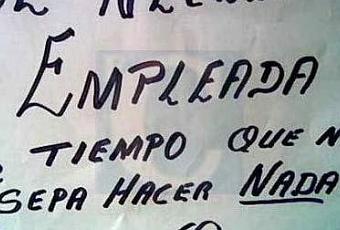 EMPLEADA
TIEMPO QUE
SEPA HACER NADA